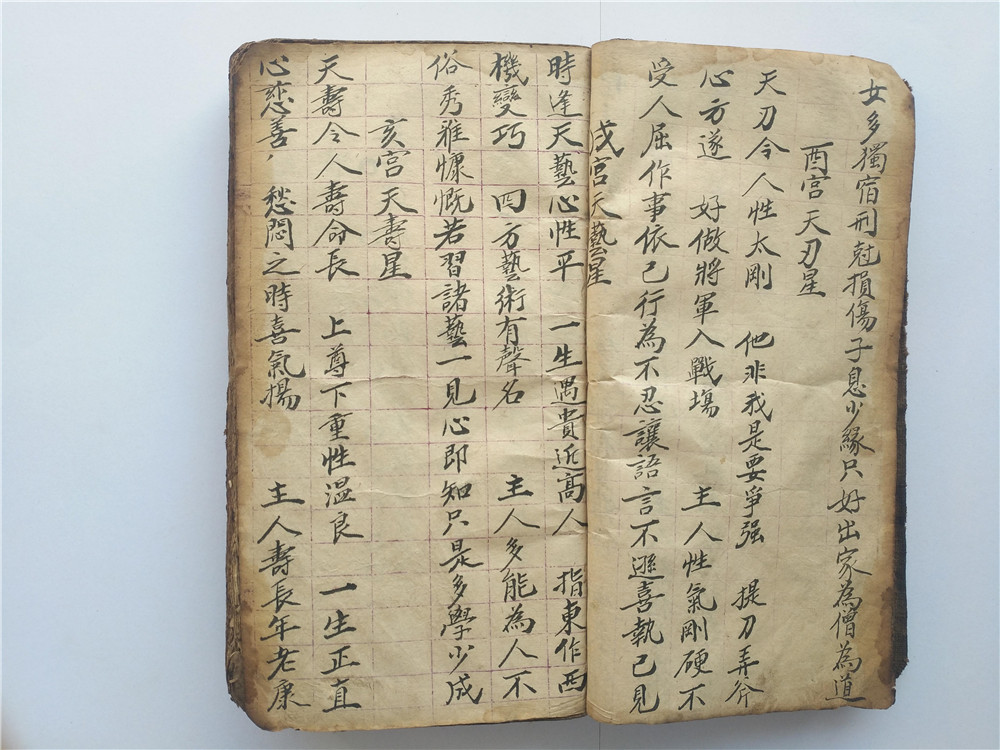 女多獨宿刑尅損傷子息少緣只好出家為僧為道
酉宮天刃星
天刃令人性太剛 他非我是要爭强 提刀弄斧
心方遂 好做將軍入戰場 主人性氣剛硬不
受人屈作事依己行為不忍讓語言不遜喜執己見
戌宮天藝星
時逢天藝心性平 一生遇貴近高人 指東作西
機變巧 四方藝術有聲名 主人多能為人不
俗秀雅慷慨若習諸藝一見心即知只是多學少成
亥宮天壽星
天壽令人壽命長 上尊下重性温良 一生正直
心慈善, 愁悶之時喜氣揚 主人壽長年老康